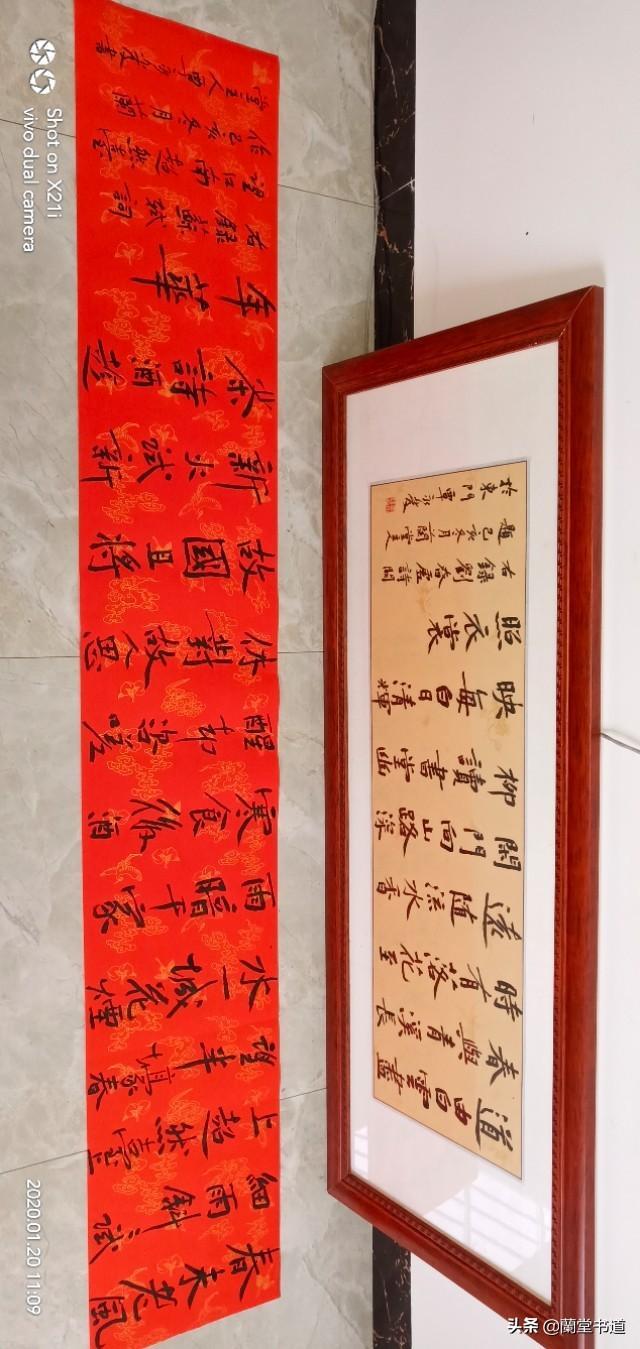 春未老風
細雨斜〻試
上超然臺上
望半壕春
水一城花煙
雨暗千家
寒食後酒
醒却咨嗟
休對故人思
故國且將
新火試新
茶詩酒趁
年華
右錄蘇軾詞
望江南超然臺
作己亥冬月蘭
堂主人覃永發書
道由白雲盡
春與青溪長
時有落花至
遠隨流水香
閑門向山路深
柳讀書堂幽
映每白日清輝
照衣裳
右錄劉眘虛詩闕
題己亥冬月蘭堂主
於東門覃永發
Shot on X21i
vivo dual camera
2020.01.20 11:09
头条 @蘭堂书道